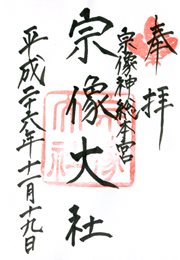 奉拝
宗像神総本宮
宗像大社
平成二十六年十二月十九日